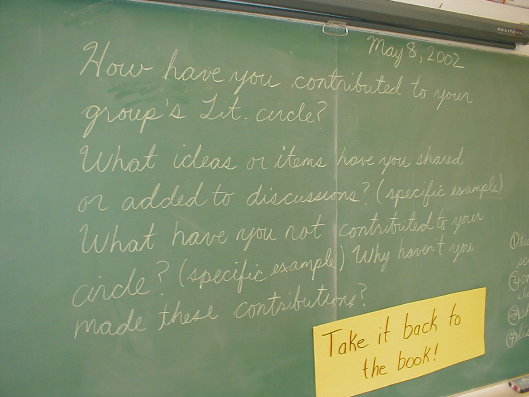 May 8, 2002
How have you contributed to your
group's Lit. circle?
What ideas or items have you shared
or added to discussions? (specific example)
What have you not contributed to your
circle? (specific example) Why haven't you
made these contributions?
Take it back to
the book!